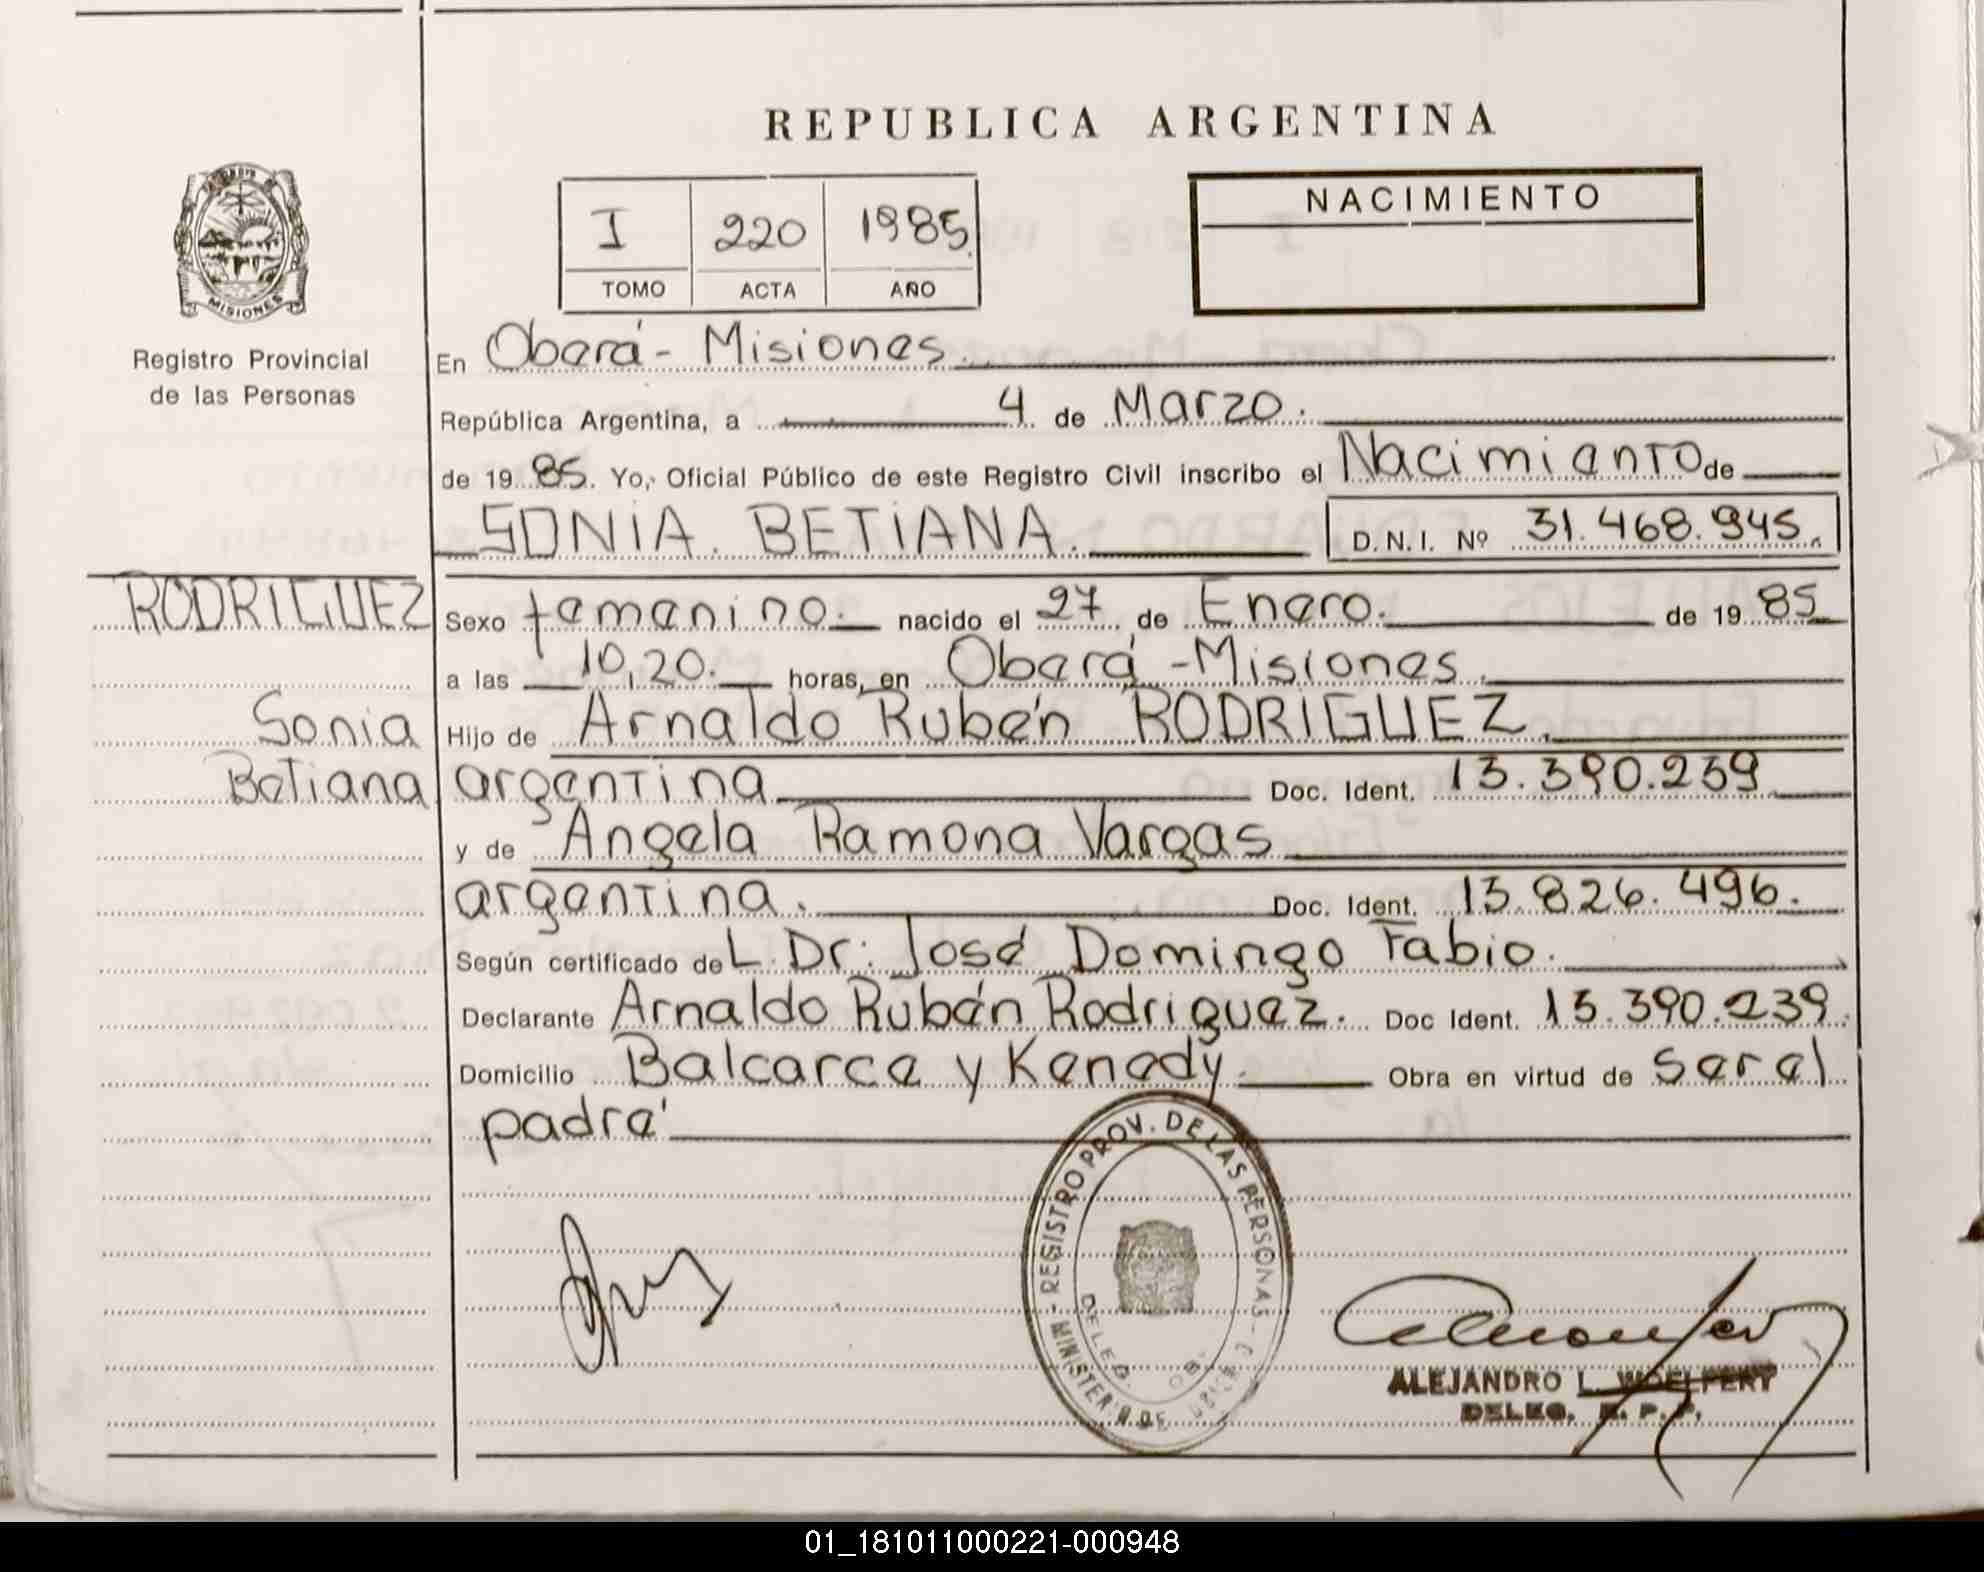 REPUBLICA ARGENTINA
I 220 1985
TOMO ACTA AÑO
NACIMIENTO
MISIONES
Registro Provincial
de las Personas
En Oberá - Misiones.
República Argentina, a 4 de Marzo.
de 1985. Yo, Oficial Público de este Registro Civil inscribo el Nacimiento de
SONIA BETIANA. D.N.I. Nº 31.468.945.
RODRIGUEZ
Sonia
Betiana
Sexo femenino. nacido el 27 de Enero. de 1985
a las 10,20. horas, en Oberá - Misiones.
Hijo de Arnaldo Rubén RODRIGUEZ.
argentina Doc. Ident. 13.390.239
y de Angela Ramona Vargas
argentina. Doc. Ident. 13.826.496.
Según certificado de L. Dr: José Domingo Fabio.
Declarante Arnaldo Rubén Rodriguez. Doc Ident. 13.390.239.
Domicilio Balcarce y Kenedy. Obra en virtud de ser el
padre
- REGISTRO PROV. DE LAS PERSONAS -
MINISTERIO DE
DELEG.
ALEJANDRO L. WOELFERT
DELEG. R. P. P.
01_181011000221-000948